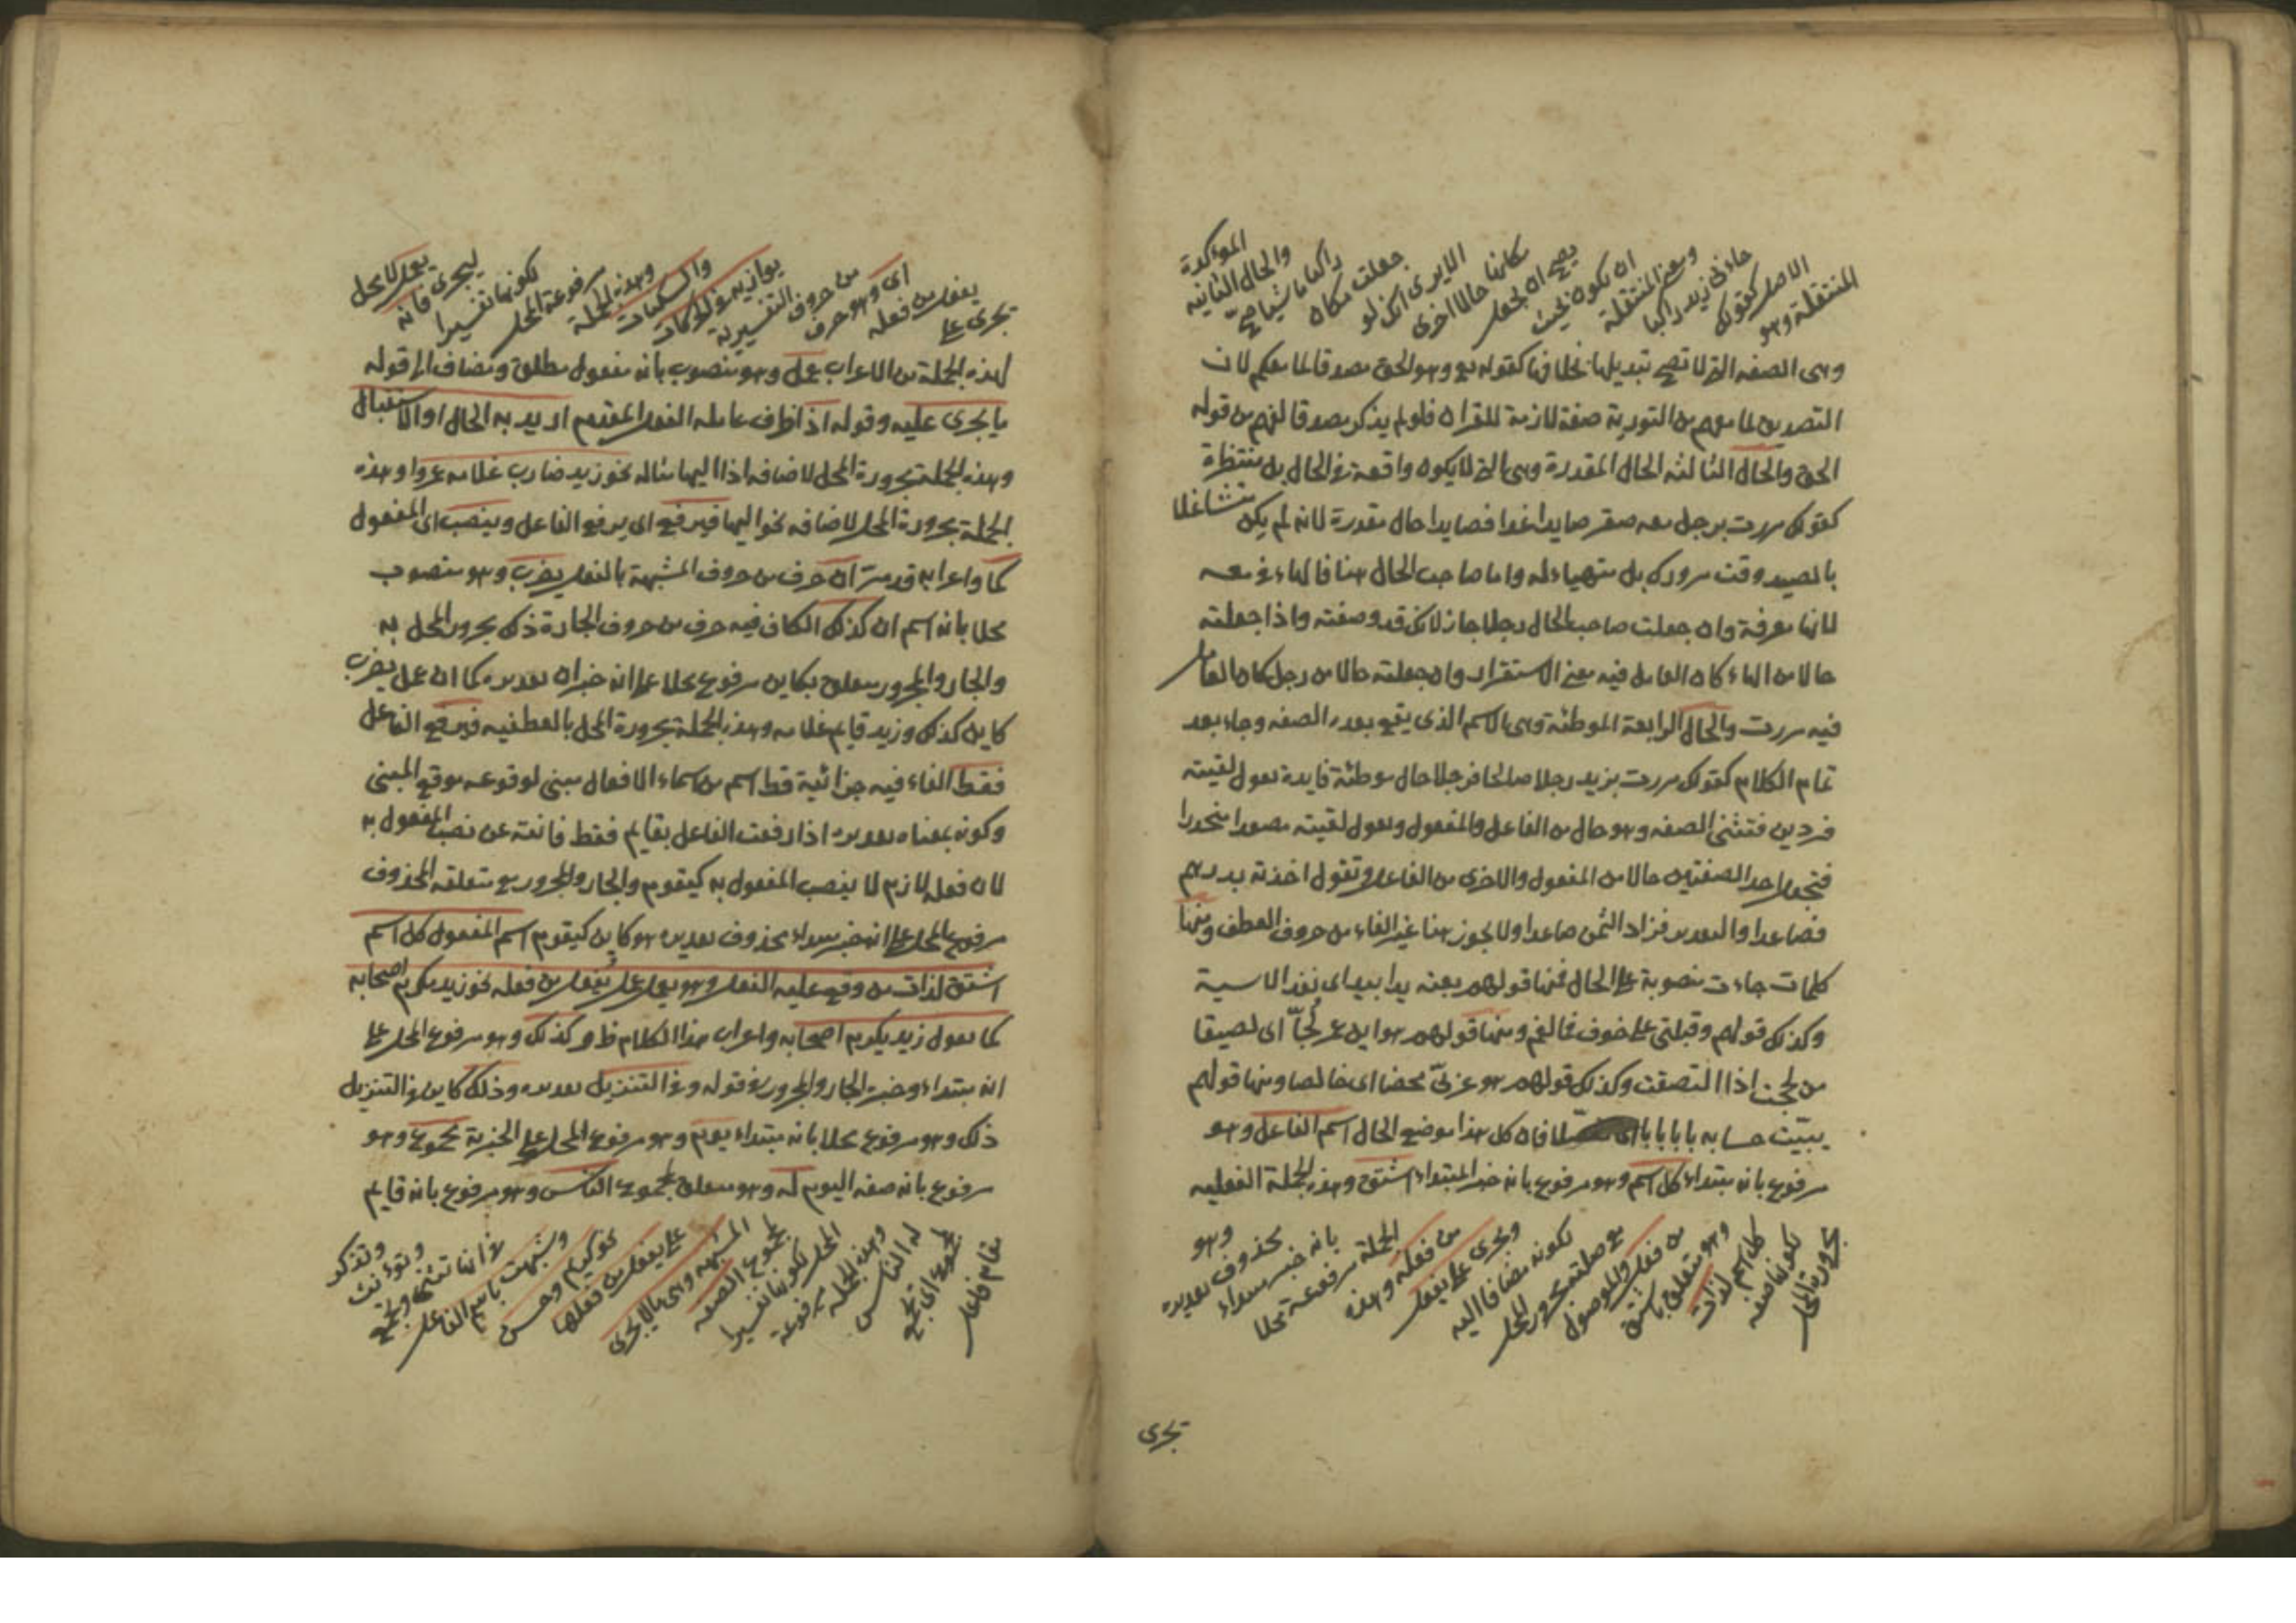 المنتقلة وهو
الاصل كقولك
جاءنى زيد راكبا
ومعنى المنتقلة
ان يكون بحيث
يصح ان يجعل
مكانها حالا اخرى
الا يرى انك لو
جعلت مكان
راكبا ماشيا صح
والحال الثانية
المؤكدة
وهى الصفه التى لا تصح تبديلها بخلافها كقوله تع وهو الحق مصدقا لما معكم لان
التصديق لما معهم من التورية صفة لازمة للقران فلو لم يذكر مصدقا لفهم من قوله
الحق والحال الثالثه الحال المقدرة وهى التى لا يكون واقعة فى الحال بل منتظرة
كقولك مررت برجل معه صقر صايدا غدا فصايدا حال مقدرة لانه لم يكن متشاغلا
بالصيد وقت مرورك بل متهياء له واما صاحب الحال هنا فالهاء فى معه
لانها معرفة وان جعلت صاحب الحال رجلا جاز لانك قد وصفته واذا جعلته
حالا من الهاء كان العامل فيه معنى الاستقرار وان جعلته حالا من رجل كان العامل
فيه مررت والحال الرابعة الموطئة وهى الاسم الذى يقع بعده الصفه وجاء بعد
تمام الكلام كقولك مررت بزيد رجلا صالحا فرجلا حال موطئة فايدة تقول لقيته
فردين فتثنى الصفه وهو حال من الفاعل والمفعول وتقول لقيته مصعدا منحدرا
فتجعل احد الصفتين حالا من المفعول والاخرى من الفاعل وتقول اخذته بدرهم
فصاعدا والتقدير فزاد الثمن صاعدا ولا يجوز هنا غير الفاء من حروف العطف ومنها
كلمات جاءت منصوبة على الحال فمنها قولهم بعته يدا بيد اى نقدا لا سية
وكذلك قولهم وقبلتى على خوف فما لفم ومنها قولهم هو ابن عمى لحّا اى لصيقا
من لححت اذا التصقت وكذلك قولهم هو عربى محضا اى خالصا ومنها قولهم
بيّنت حسابه بابا بابا اى مفصّلا فان كل هذا موضع الحال اسم الفاعل وهو
مرفوع بانه مبتداء كل اسم وهو مرفوع بانه خبر المبتداء اشتق وهذه الجملة الفعليه
مجرورة المحل
لكونها صفه
كل اسم لذات
وهو متعلق باشتق
من فعل والموصول
مع صلته مجرور المحل
لكونه مضافا اليه
ويجرى على يفعل
من فعله وهذه
الجملة مرفوعة محلا
بانه خبر مبتداء
محذوف تقديره
وهو
تجرى
تجرى على
يفعل من فعله
اى وهو حرف
من حروف التفسيرية
يوازيه فى الحركات
والسكنات
وهذه الجملة
مرفوعة المحل
لكونها تفسيرا
ليجرى فانه
يعمل لا محل
لهذه الجملة من الاعراب عمل وهو منصوب بانه مفعول مطلق ومضاف الى قوله
ما يجرى عليه وقوله اذا ظرف عامله الفعل المقدم اريد به الحال او الاستقبال
وهذه الجملة مجرورة المحل لاضافه اذا اليها مثاله نحو زيد ضارب غلامه عمروا وهذه
الجملة مجرورة المحل لاضافه نحو اليها فيرفع اى يرفع الفاعل وينصب اى المفعول
كما واعرابه قد مرّ ان حرف من حروف المشبهة بالفعل يضرب وهو منصوب
محلا بانه اسم ان كذلك الكاف فيه حرف من حروف الجارة ذلك مجرور المحل به
والجار والمجرور متعلق بكاين مرفوع محلا على انه خبر ان تقديره كما ان عمل يضرب
كاين كذلك وزيد قايم غلامه وهذه الجملة مجرورة المحل بالعطفيه فيرفع الفاعل
فقط الفاء فيه جزائية قط اسم من اسماء الافعال مبنى لوقوعه موقع المبنى
وكونه بمعناه تقديره اذا رفعت الفاعل بقايم فقط فانته عن نصب المفعول به
لان فعله لازم لا ينصب المفعول به كيقوم والجار والمجرور مع متعلقه المحذوف
مرفوع المحل على انه خبر مبتداء محذوف تقديره هو كاين كيقوم اسم المفعول كل اسم
اشتق لذات من وقع عليه الفعل وهو يعمل عمل يُفعل من فعله نحو زيد مكرم اصحابه
كما تقول زيد يكرم اصحابه واعراب هذا الكلام ظ و كذلك وهو مرفوع المحل على
انه مبتداء وخبره الجار والمجرور فى قوله وفى التنزيل تقديره وذلك كاين فى التنزيل
ذلك وهو مرفوع محلا بانه مبتداء يوم وهو مرفوع المحل على الخبرية مجموع وهو
مرفوع بانه صفه اليوم له وهو متعلق بمجموع الناس وهو مرفوع بانه قايم
مقام فاعل
مجموع اى تجمع
له الناس
وهذه الجملة مرفوعة
المحل لكونها تفسيرا
لمجموع الصفه
المشبهه وهى ما لا يجرى
على يفعل من فعلها
نحو كريم وحسن
وشبهت باسم الفاعل
فى انها تثنى وتجمع
وتؤنث
وتذكر